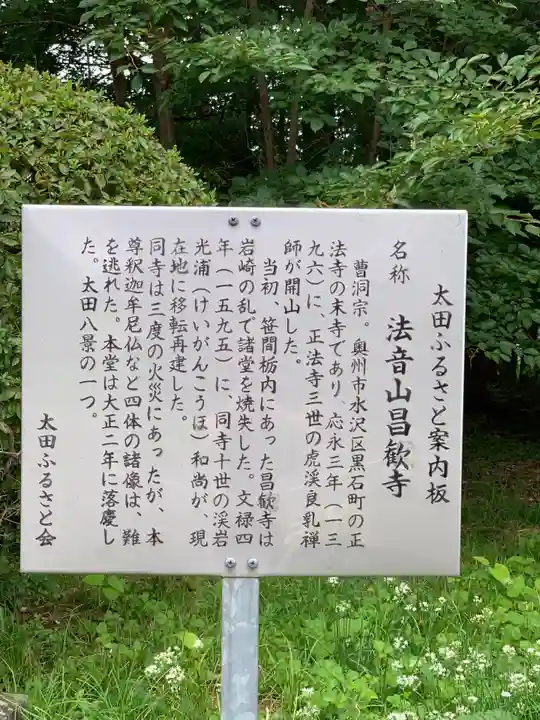 太田ふるさと案内板
名称　法音山昌歓寺
曹洞宗。奥州市水沢区黒石町の正
法寺の末寺であり、応永三年（一三
九六）に、正法寺三世の虎渓良乳禅
師が開山した。
当初、笹間栃内にあった昌歓寺は
岩崎の乱で諸堂を焼失した。文禄四
年（一五九五）に、同寺十世の渓岩
光浦（けいがんこうほ）和尚が、現
在地に移転再建した。
同寺は三度の火災にあったが、本
尊釈迦牟尼仏など四体の諸像は、難
を逃れた。本堂は大正二年に落慶し
た。太田八景の一つ。
太田ふるさと会